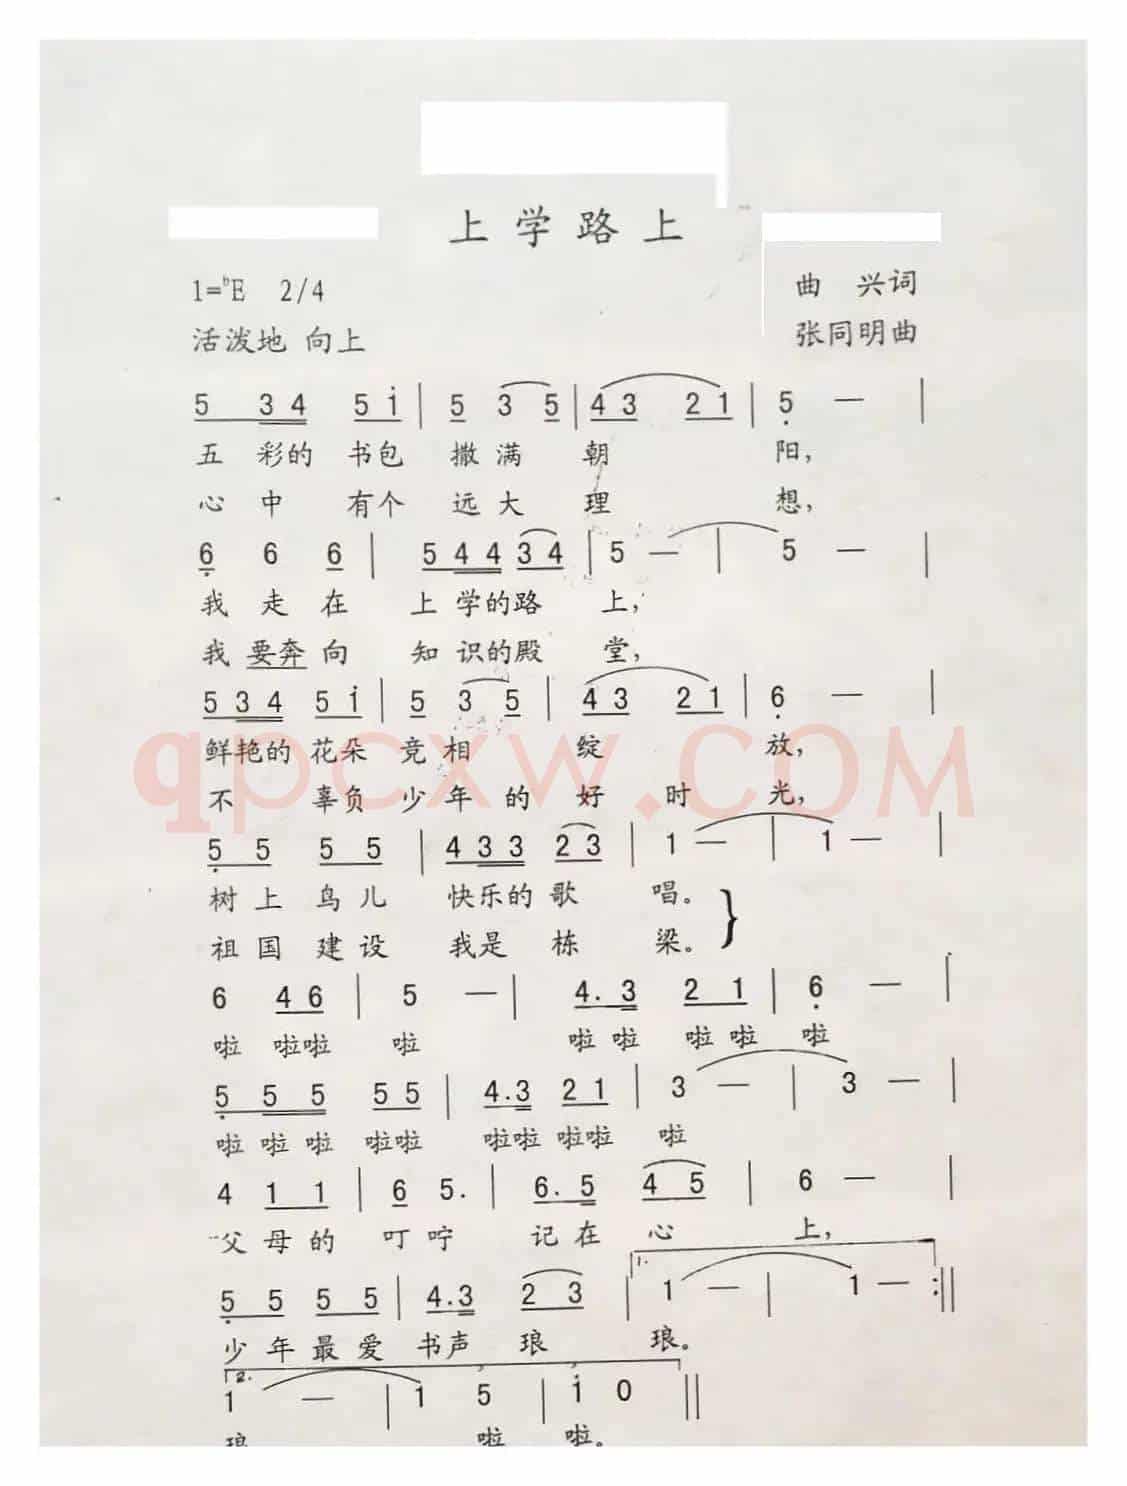 上学路上
1=ᵇE 2/4
曲 兴词
活泼地 向上
张同明曲
5 3 4 5 i | 5 3 5 | 4 3 2 1 | 5 — |
五 彩的 书包 撒 满 朝 阳，
心 中 有个 远 大 理 想，
6 6 6 | 5 4 4 3 4 | 5 — | 5 — |
我 走 在 上 学的路 上，
我 要奔 向 知 识的殿 堂，
5 3 4 5 i | 5 3 5 | 4 3 2 1 | 6 — |
鲜艳的 花朵 竞 相 绽 放，
不 辜负 少 年 的 好 时 光，
qpcxw.COM
5 5 5 5 | 4 3 3 2 3 | 1 — | 1 — |
树 上 鸟 儿 快乐的 歌 唱。
祖 国 建 设 我是 栋 梁。
6 4 6 | 5 — | 4. 3 2 1 | 6 — |
啦 啦啦 啦 啦 啦 啦 啦 啦
5 5 5 5 5 | 4.3 2 1 | 3 — | 3 — |
啦 啦 啦 啦啦 啦啦 啦啦 啦
4 1 1 | 6 5. | 6. 5 4 5 | 6 — |
父 母 的 叮 咛 记 在 心 上，
1.
5 5 5 5 | 4.3 2 3 | 1 — | 1 — :||
少 年 最 爱 书声 琅 琅。
2.
1 — | 1 5 | i 0 ||
琅 啦 啦。